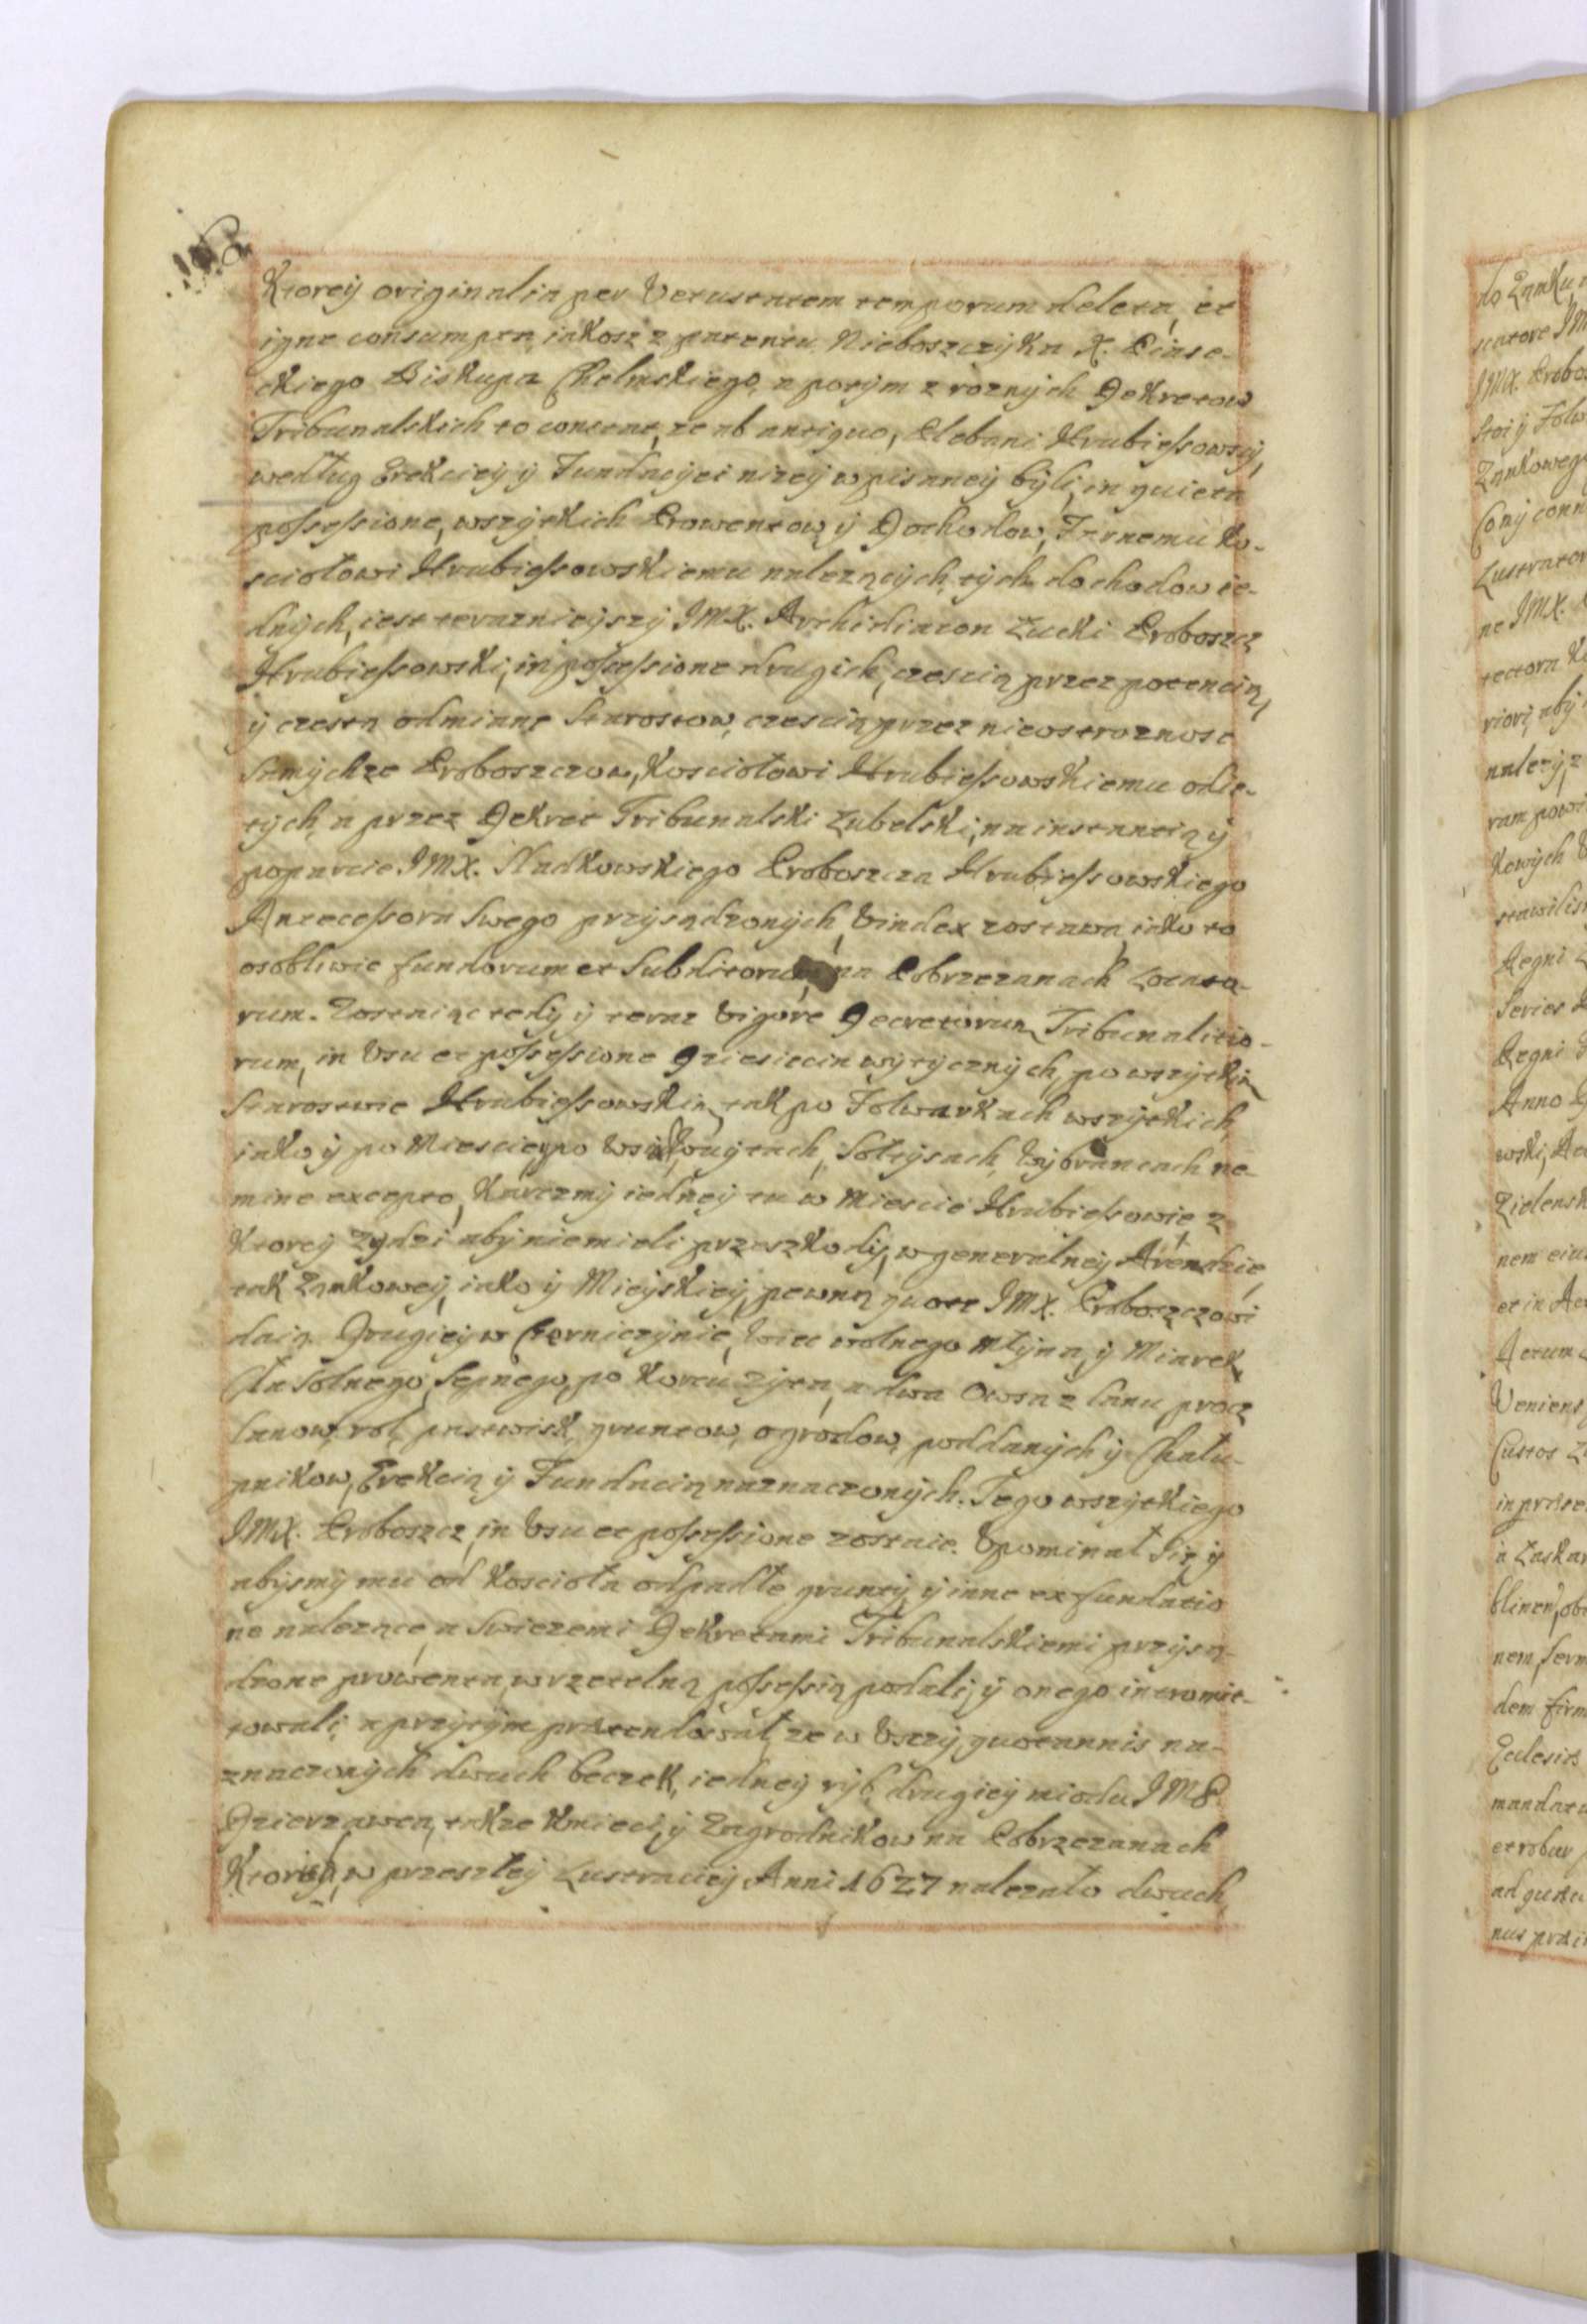 Ktorey originalia per Vetustatem temporum deleta, et
igne consumpta, iakosz z patentu Nieboszczyka X. Piase-
ckiego Biskupa Chelmskiego, a potym z roznych Dekretow
Tribunalskich to constat, ze ab antiquo, Plebani Hrubieszowscy,
według Erekciey y Fundacyei nizey wpisaney byli, in quieta
possessione, wszytkich Prowentow y Dochodow, Farnemu Ko-
sciołowi Hrubieszowskiemu nalezących, tych dochodow ie-
dnych, iest teraznieyszy JMX. Archidiacon Łucki Proboszcz
Hrubieszowski, in possessione drugich, czescią przez potencią,
y czestą odmianę Starostow, czescią przez nieostroznosc
Samychze Proboszczow, Kosciołowi Hrubieszowskiemu odie-
tych, a przez Dekret Tribunalski Lubelski, na instantią y
poparcie JMX. Sladkowskiego Proboszcza Hrubieszowskiego
Antecessora Swego przysądzonych, Vindex zostawa, iako to
osobliwie fundorum et Subditorum na Pobrzezanach Locato-
rum. Zostaiąc tedy y teraz Vigore Decretorum Tribunalitio-
rum, in Vsu et possessione Dziesiecin wytycznych, po wszytkim
Starostwie Hrubieszowskim, tak po Folwarkach wszytkich
iako y po Miescie, po Wsiach, Woytach, Soltysach, Wybrancach ne-
mine excepto, Karczmy iedney tu w Miescie Hrubieszowie z
Ktorey Zydzi aby niemieli przeszkody, w generalney Arendzie
tak Zamkowey, iako y Mieyskiey, pewną quotę JMX. Proboszczowi
daią. Drugiey w Czerniczynie, Wiec wolnego Młyna, y Miarek
Sta Solnego, Sepnego, po Korcu zyta, a dwa Owsa z łanu, procz
łanow, rol, pastwisk, gruntow, ogrodow, poddanych y Chału-
pnikow, Erekcią y Fundacią naznaczonych. Tego wszytkiego
JMX. Proboszcz, in Vsu et possessione zostaie. Vpominał się y
abysmy mu od Koscioła odpadłe grunty, y inne ex fundatio
ne nalezące, a Swiezemi Dekretami Tribunalskiemi przysą-
dzone prowenta, w rzetelną possessią podali, y onego intromit-
towali, a przytym praetendował, ze w Vsczy quotannis na-
znaczonych dwuch beczek, iedney ryb, drugiey miodu JMP.
Dzierzawca, takze Kmieci, y Zagrodnikow na Pobrzezanach
Ktorych, w przeszłey Lustraciey Anni 1627 nalezało dwuch,